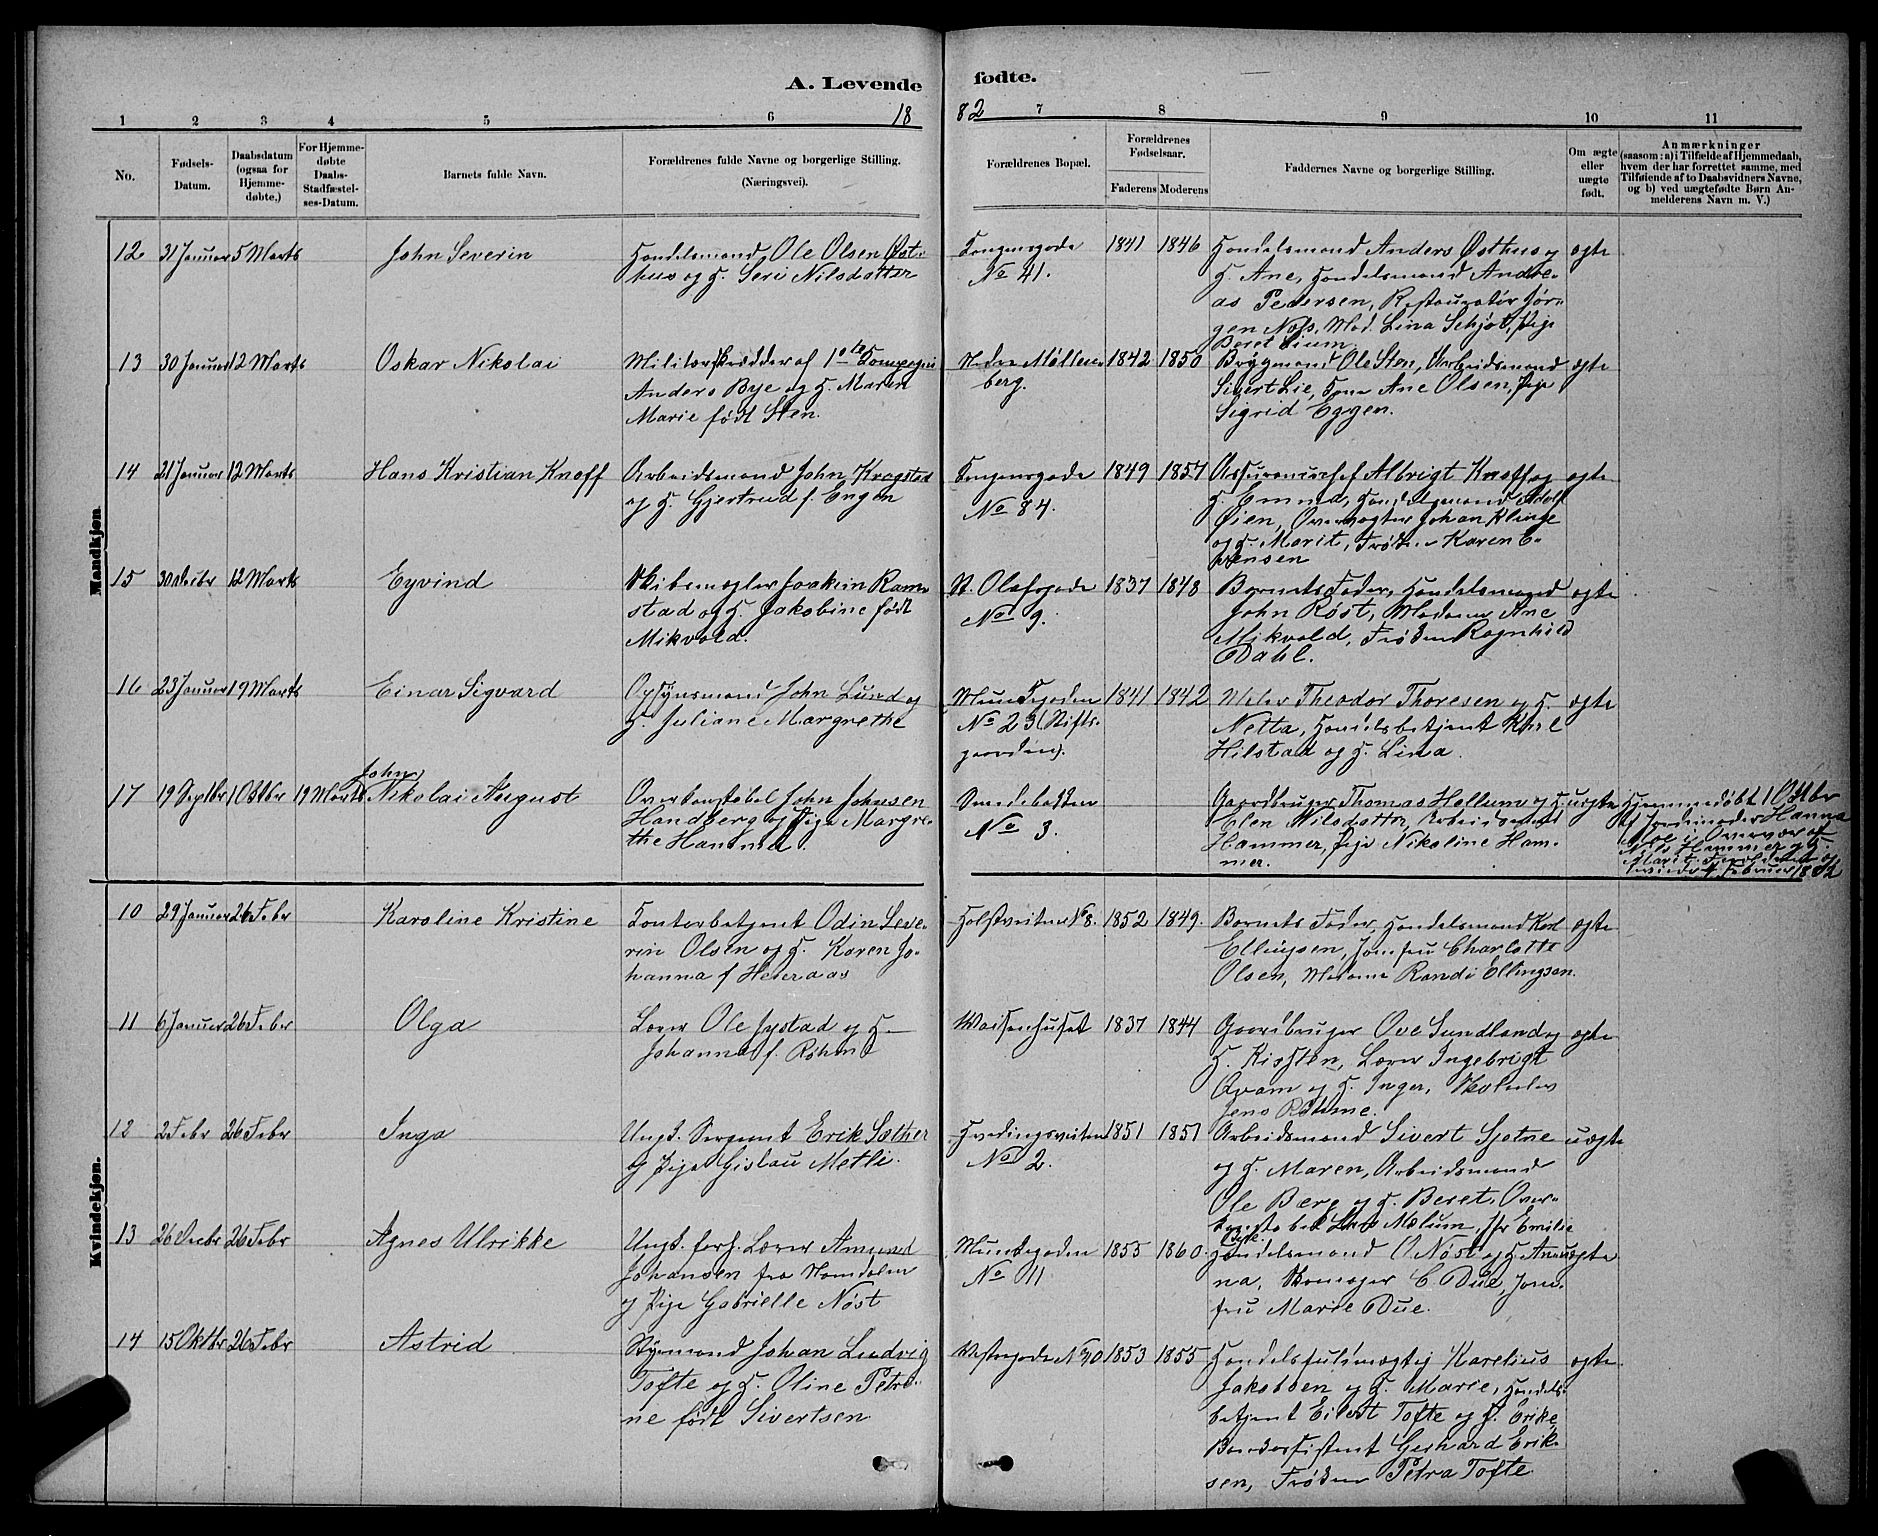 A. Levende fødte.
1882
1 2 3 4 5 6 7 8 9 10 11
No.
Fødsels-
Datum.
Daabsdatum
(ogsaa for
Hjemme-
døbte.)
For Hjemme-
døbte
Daabs-
Stadfæstel-
ses-Datum.
Barnets fulde Navn.
Forældrenes fulde Navne og borgerlige Stilling.
(Næringsvei).
Forældrenes Bopæl.
Forældrenes
Fødselsaar.
Faderens Moderens
Faddernes Navne og borgerlige Stilling.
Om ægte
eller
uægte
født.
Anmærkninger
(saasom: a) i Tilfælde af Hjemmedaab,
hvem der har forrettet samme, med
Tilføiende af to Daabsvidners Navne,
og b) ved uægtefødte Børn An-
melderens Navn m. V.)
Mandkjøn.
12 31 Januar 5 Marts John Severin
Handelsmand Ole Olsen Øst-
hus og H. Seri Nilsdatter
Tongensgade
No 41.
1841 1846
Handelsmand Anders Østhus og
H. Ane, Handelsmand Andre-
as Pedersen, Restauratør Jør-
gen Næss, Mad. Lina Schjøt, Pige
Beret Lium
ægte
13 30 Januar 12 Marts Oskar Nikolai
Militærskrædder af 1ste Kompagni
Anders Bye og H. Maren
Marie født Sten.
Nedre Møllen-
berg.
1842 1850
Bryggmand Ole Sten, Arbeidsmand
Sivert Lie, Kone Ane Olsen, Pige
Sigrid Eggen.
ægte
14 21 Januar 12 Marts Hans Kristian Knoff
Arbeidsmand John Krogstad
og H. Gjertrud f. Engen
Tongensgade
No 84.
1849 1857
Assuranschef Albrigt Knoff og
H. Emma, Handelsmand Adolf
Øien, Overvægter Johan Klinge
og H. Marit, Frøken Karen E-
vensen
ægte
15 30 Decbr 12 Marts Eyvind
Skibsmægler Joakim Ram-
stad og H. Jakobine født
Mikvold.
St. Olafsgade
No 9.
1837 1848
Barnets Fader, Handelsmand
John Røst, Madame Ane
Mikvold, Frøken Ragnhild
Dahl.
ægte
16 23 Januar 19 Marts Einar Sigvard
Opsynsmand John Lund og
H. Juliane Margrethe
Munkegaden
No 23 (Stifts-
gaarden).
1841 1842
Maler Theodor Thoresen og H.
Netta, Handelsbetjent Karl
Hilstad og H. Lina.
ægte
17 19 Septbr 1 Oktbr 19 Marts John
Nikolai August
Overkonstabel John Johnsen
Handberg og Pige Margre-
the Hammer.
Smedebakken
No 3.
Gaardbruger Thomas Hellum og H.
Elen Nilsdatter, Arbeidsmand
Hammer, Pige Nikoline Ham-
mer.
uægte
Hjemmedøbt 1 Oktbr
af Jordmoder Hanna
Moe i Overvær af
Nils Hammer og H.
Marit.
Februar 1882
Kvindekjøn.
10 29 Januar 26 Febr Karoline Kristine
Kontorbetjent Odin Seve-
rin Olsen og H. Karen Jo-
hanna f. Heieraas
Holstveiten No 8. 1852 1849.
Barnets Fader, Handelsmand Karl
Ellingsen, Jomfru Charlotte
Olsen, Madame Randi Ellingsen.
ægte
11 6 Januar 26 Febr Olga
Lærer Ole Jystad og H.
Johanna f. Røhme
Waisenhuset 1837 1844
Gaardbruger Ove Sundland og
H. Kirsten, Lærer Ingebrigt
Qvam og H. Inger,
Jens Røhme.
ægte
12 2 Febr 26 Febr Inga
Ungk. Sergeant Erik Sæther
og Pige Gislau Metli.
Hvedingsveiten
No 2.
1851 1851
Arbeidsmand Sivert Sjetne
og H. Maren, Arbeidsmand
Ole Berg og H. Beret, Over-
konstabel Lars Mælum, Jfr Emilie
uægte
13 26 Decbr 26 Febr Agnes Ulrikke
Ungk. forh. Lærer Amund
Johansen fra Namdalen
og Pige Gabrielle Nøst
Munkegaden
No 11
1855 1860.
Handelsmand O Nøst og H. An-
na, Skomager C. Due, Jom-
fru Marie Due.
uægte
14 15 Oktbr 26 Febr Astrid
Styrmand Johan Ludvig
Tofte og H. Oline Petri-
ne født Sivertsen
Vestregade No 20 1853 1855
Handelsfuldmægtig Karelius
Jakobsen og H. Marie, Handels-
betjent Eilert Tofte og H. Erike,
Bankassistent Gerhard Erik-
sen, Frøken Petra Tofte.
ægte